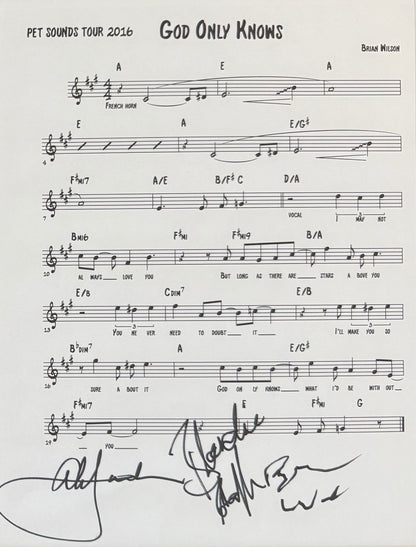 PET SOUNDS TOUR 2016 GOD ONLY KNOWS
BRIAN WILSON
A E A
FRENCH HORN
E A E/G♯
4
F♯MI7 A/E E B/F♯ C D/A
7
VOCAL I MAY NOT
BMI6 F♯MI F♯MI9 B/A
10
AL WAYS LOVE YOU BUT LONG AS THERE ARE STARS A BOVE YOU
E/B CDIM7 E/B
13
YOU NE VER NEED TO DOUBT IT I'LL MAKE YOU SO
B♭DIM7 A E/G♯
16
SURE A BOUT IT GOD ON LY KNOWS WHAT I'D BE WITH OUT
F♯MI7 E F♯MI G
19
YOU